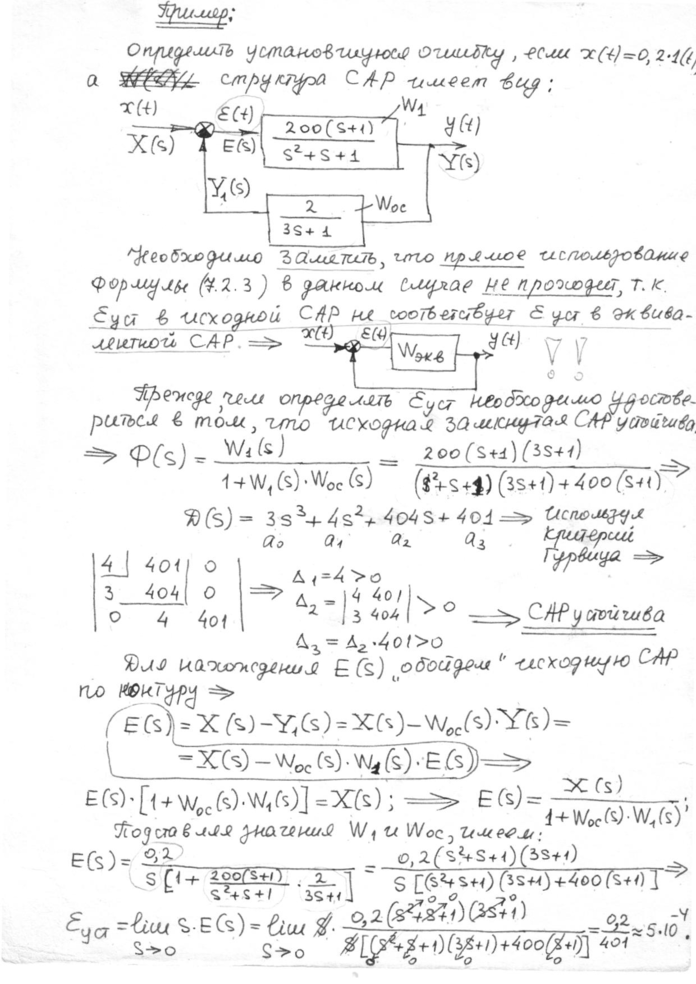 Пример:
Определить установившуюся ошибку, если x(t)=0,2·1(t),
а структура САР имеет вид:
x(t) ε(t) W₁ y(t)
X(s) E(s) 200(s+1) / s²+s+1 Y(s)
Y₁(s) 2 / 3s+1 Wос
Необходимо заметить, что прямое использование
формулы (7.2.3) в данном случае не проходит, т.к.
Eуст в исходной САР не соответствует Eуст в эквива-
лентной САР. ⇒ x(t) ε(t) Wэкв y(t) !!
Прежде, чем определять Eуст необходимо удостове-
риться в том, что исходная замкнутая САР устойчива.
⇒ Φ(s) = W₁(s) / 1+W₁(s)·Wос(s) = 200(s+1)(3s+1) / (s²+s+1)(3s+1)+400(s+1) ⇒
D(s) = 3s³+4s²+404s+401 ⇒ используя
a₀ a₁ a₂ a₃ критерий
Гурвица ⇒
|4 401 0| ⇒ Δ₁=4>0
|3 404 0| Δ₂=|4 401; 3 404|>0 ⇒ САР устойчива
|0 4 401| Δ₃=Δ₂·401>0
Для нахождения E(s) „обойдем" исходную САР
по контуру ⇒
E(s) = X(s)-Y₁(s) = X(s)-Wос(s)·Y(s)=
=X(s)-Wос(s)·W₁(s)·E(s) ⇒
E(s)·[1+Wос(s)·W₁(s)]=X(s); ⇒ E(s)= X(s) / 1+Wос(s)·W₁(s);
Подставляя значения W₁ и Wос, имеем:
E(s)= 0,2 / s[1+ 200(s+1) / s²+s+1 · 2 / 3s+1] = 0,2(s²+s+1)(3s+1) / s[(s²+s+1)(3s+1)+400(s+1)] ⇒
Eуст=lim s·E(s)=lim s· 0,2(s²+s+1)(3s+1) / s[(s²+s+1)(3s+1)+400(s+1)] = 0,2 / 401 ≈5·10⁻⁴.
s→0 s→0